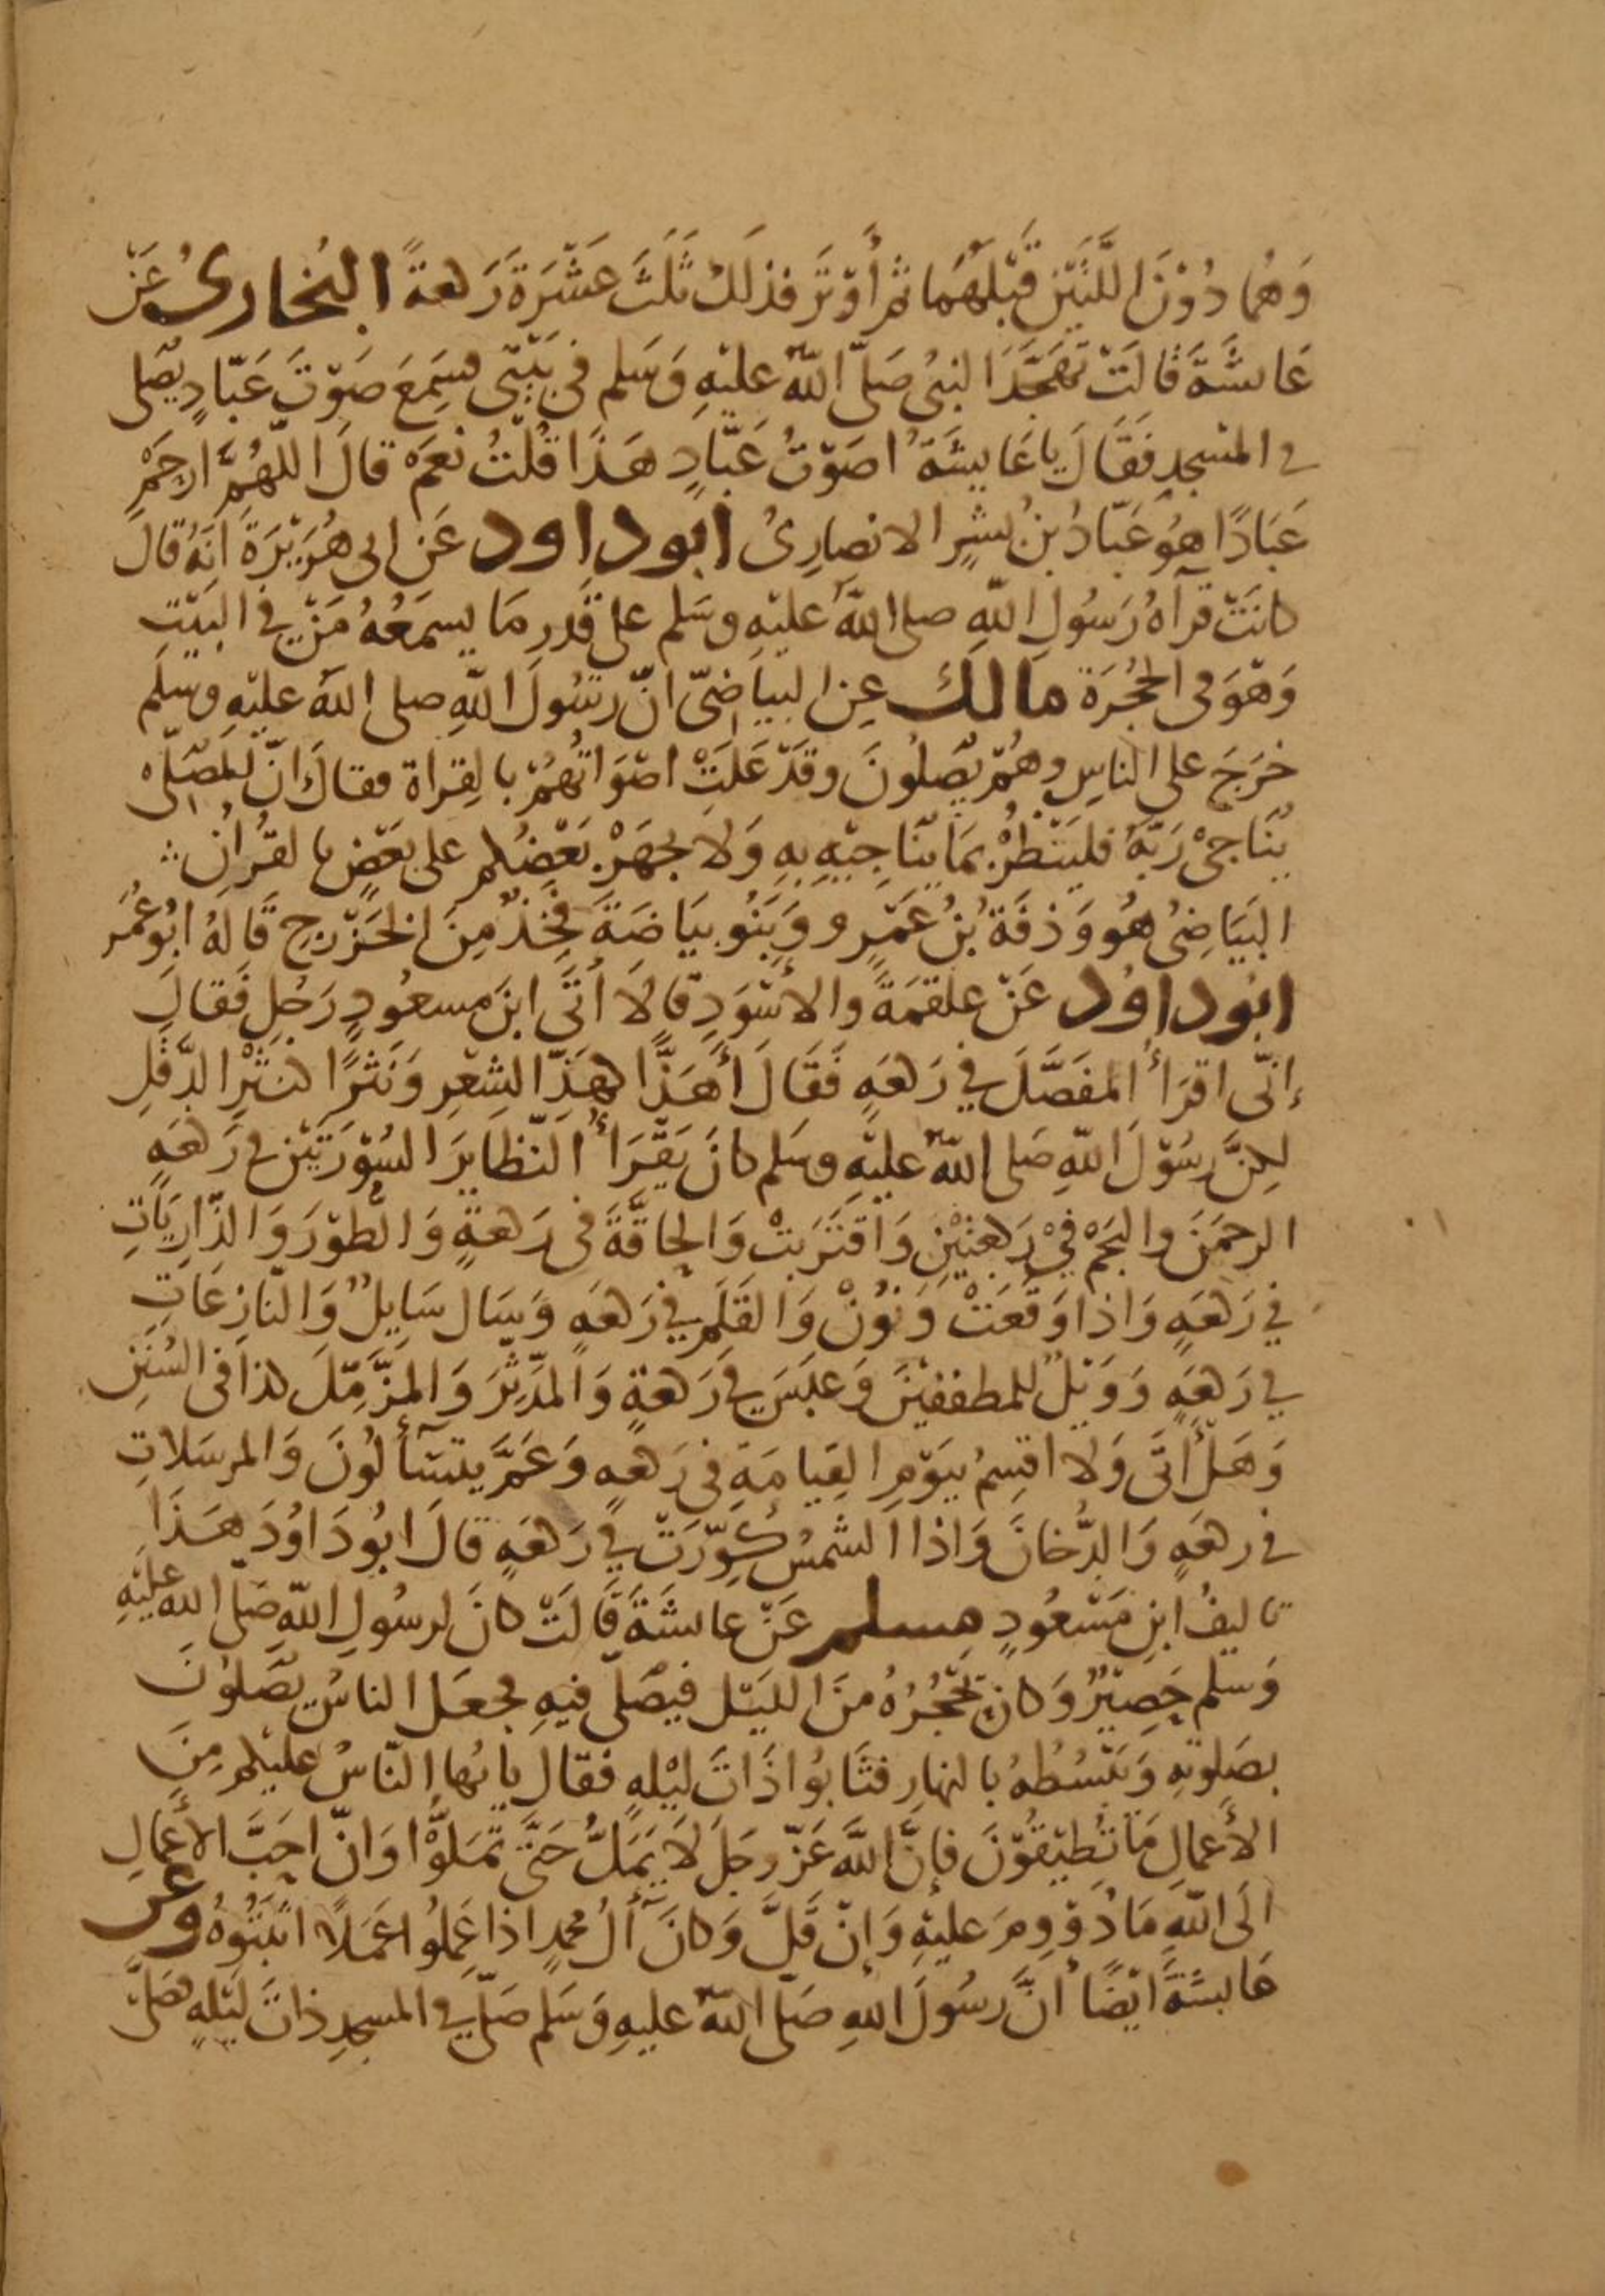 وَهُمَا دُوْنَ اللَّتَيْنِ قَبْلَهُمَا ثُمَّ أَوْتَرَ فذلَكَ ثَلَثَ عَشْرَةَ رَكعةً البُخارىُ عَنْ
عَائشَةَ قَالَتْ تَهَجَّدَ النبىُ صَلّى اللّهُ عليْهِ وَسَلم فى بَيْتى فسَمِعَ صَوْتَ عَبّادٍ يصَلى
فى المسْجدِ فَقَالَ يا عَايشَةُ اصَوْتُ عَبّادٍ هَذَا قُلْتُ نَعَمْ قالَ اللّهُمَّ ارحَمْ
عَبَادًا هوُ عَبّادُ بْنُ بشرٍ الانصارِىُ ابوداود عَن ابى هُرَيْرَةَ انَهُ قالَ
كانَتْ قرآهُ رَسُولِ اللّهِ صلى اللّهُ عليْهِ وسَلم على قَدرِ مَا يسمَعُهُ مَنْ فى البَيْتِ
وَهْوَ فى الحُجُرَة مالك عِن البيَاضىّ انّ رسُولَ اللّهِ صلى اللّهُ عليْهِ وسلم
خرَجَ على الناسِ وهُمْ يصَلونَ وقَدْ عَلَتْ اصْوَاتُهُمْ بالقِراة فقالَ انّ المصَلّى
يُنَاجىْ رَبَّهُ فليَنْظُرْ بمَا ينَاجِيْهِ بهِ وَلَا يجهَرْ بَعْضُكم على بَعْضٍ بالقُراٰنِ
البَيَاضِىُ هُو وَذفَةُ بْنُ عَمْرٍو وَبَنُو بيَاضَةَ فخِذٌ مِنَ الخَزْرجِ قَالَهُ ابُو عُمَر
ابُوداوُد عَنْ علقمَةَ والاسْوَدِ قالَا أتَى ابنَ مسعُودٍ رَجُل فَقالَ
إنّى اقرَأُ المفَصَّلَ فى رَكعَهٍ فَقَالَ أَهَذًّا كهَذِّ الشِعْرِ وَنَثرًا كنَثْرِ الدَّقلِ
لكِنَّ رسُوْلَ اللّهِ صَلى اللّهُ عليْهِ وسَلم كانَ يَقْرَأُ النّظَايرَ السُوْرَتَيْنِ فى رَكعَهٍ
الرحمَنَ والنجْمَ فِىْ رَكعتَيْنِ وَاقتَرَبَتْ وَالحاقَّةَ فى رَكعةٍ وَالطُوْرَ وَالذَّارِيَاتِ
فى رَكعَهٍ وَاذا وَقَعَتْ وَنُوْنْ وَالقَلَمِ فى رَكعَهٍ وَسَال سَايِلٌ وَالنّازعَاتِ
فى رَكعَهٍ وَوَيْلٌ للمطففيْنَ وَعبَسَ فى رَكعةٍ وَالمدَّثِرَ وَالمزَّمّلَ كذا فى السُنَنِ
وَهَلْ أتَى وَلا اقسِمُ بيَوْمِ القِيامَةِ فى رَكعهٍ وَعَمَّ يتسَآألُونَ وَالمرسَلاتِ
فى ركعَهٍ وَالدُّخانَ وَاذا الشمْسُ كُوِّرَتْ فى رَكعَهٍ قالَ ابُودَاوُدَ هَذَا
تاليفُ ابنِ مَسْعُودٍ مسلم عَنْ عائشَةَ قَالَتْ كانَ لرسُولِ اللّهِ صَلّى اللّه عليْهِ
وَسَلم حَصِيْرٌ وَكانَ يُحجُرُهُ منَ الليَل فيصَلّى فيهِ فجعَل الناسُ يصَلوْنَ
بصَلوتهِ وَيَبْسُطُهُ بالنهارِ فثَابُوا ذَاتَ ليْلهٍ فقال يايُها النّاسُ عليكم مِنَ
الأعمالِ مَا تُطِيْقُوْنَ فإنَّ اللَّهَ عَزّ وجَلَ لَا يَمَلُّ حَتَّى تمَلوُّا وَانّ احَبَّ الأعمالِ
الَى اللّهِ مَا دُوْوِمَ عليْهِ وَإنْ قَلَّ وَكانَ آلُ محمدٍ اذا عَمِلُوا عَمَلًا اثبَتُوهُ وعن
عَايشَةَ ايْضًا أنَّ رسُولَ اللهِ صَلّى اللّهُ عليهِ وَسَلم صَلّى فى المسجدِ ذاتَ ليْلهٍ فصَلّى